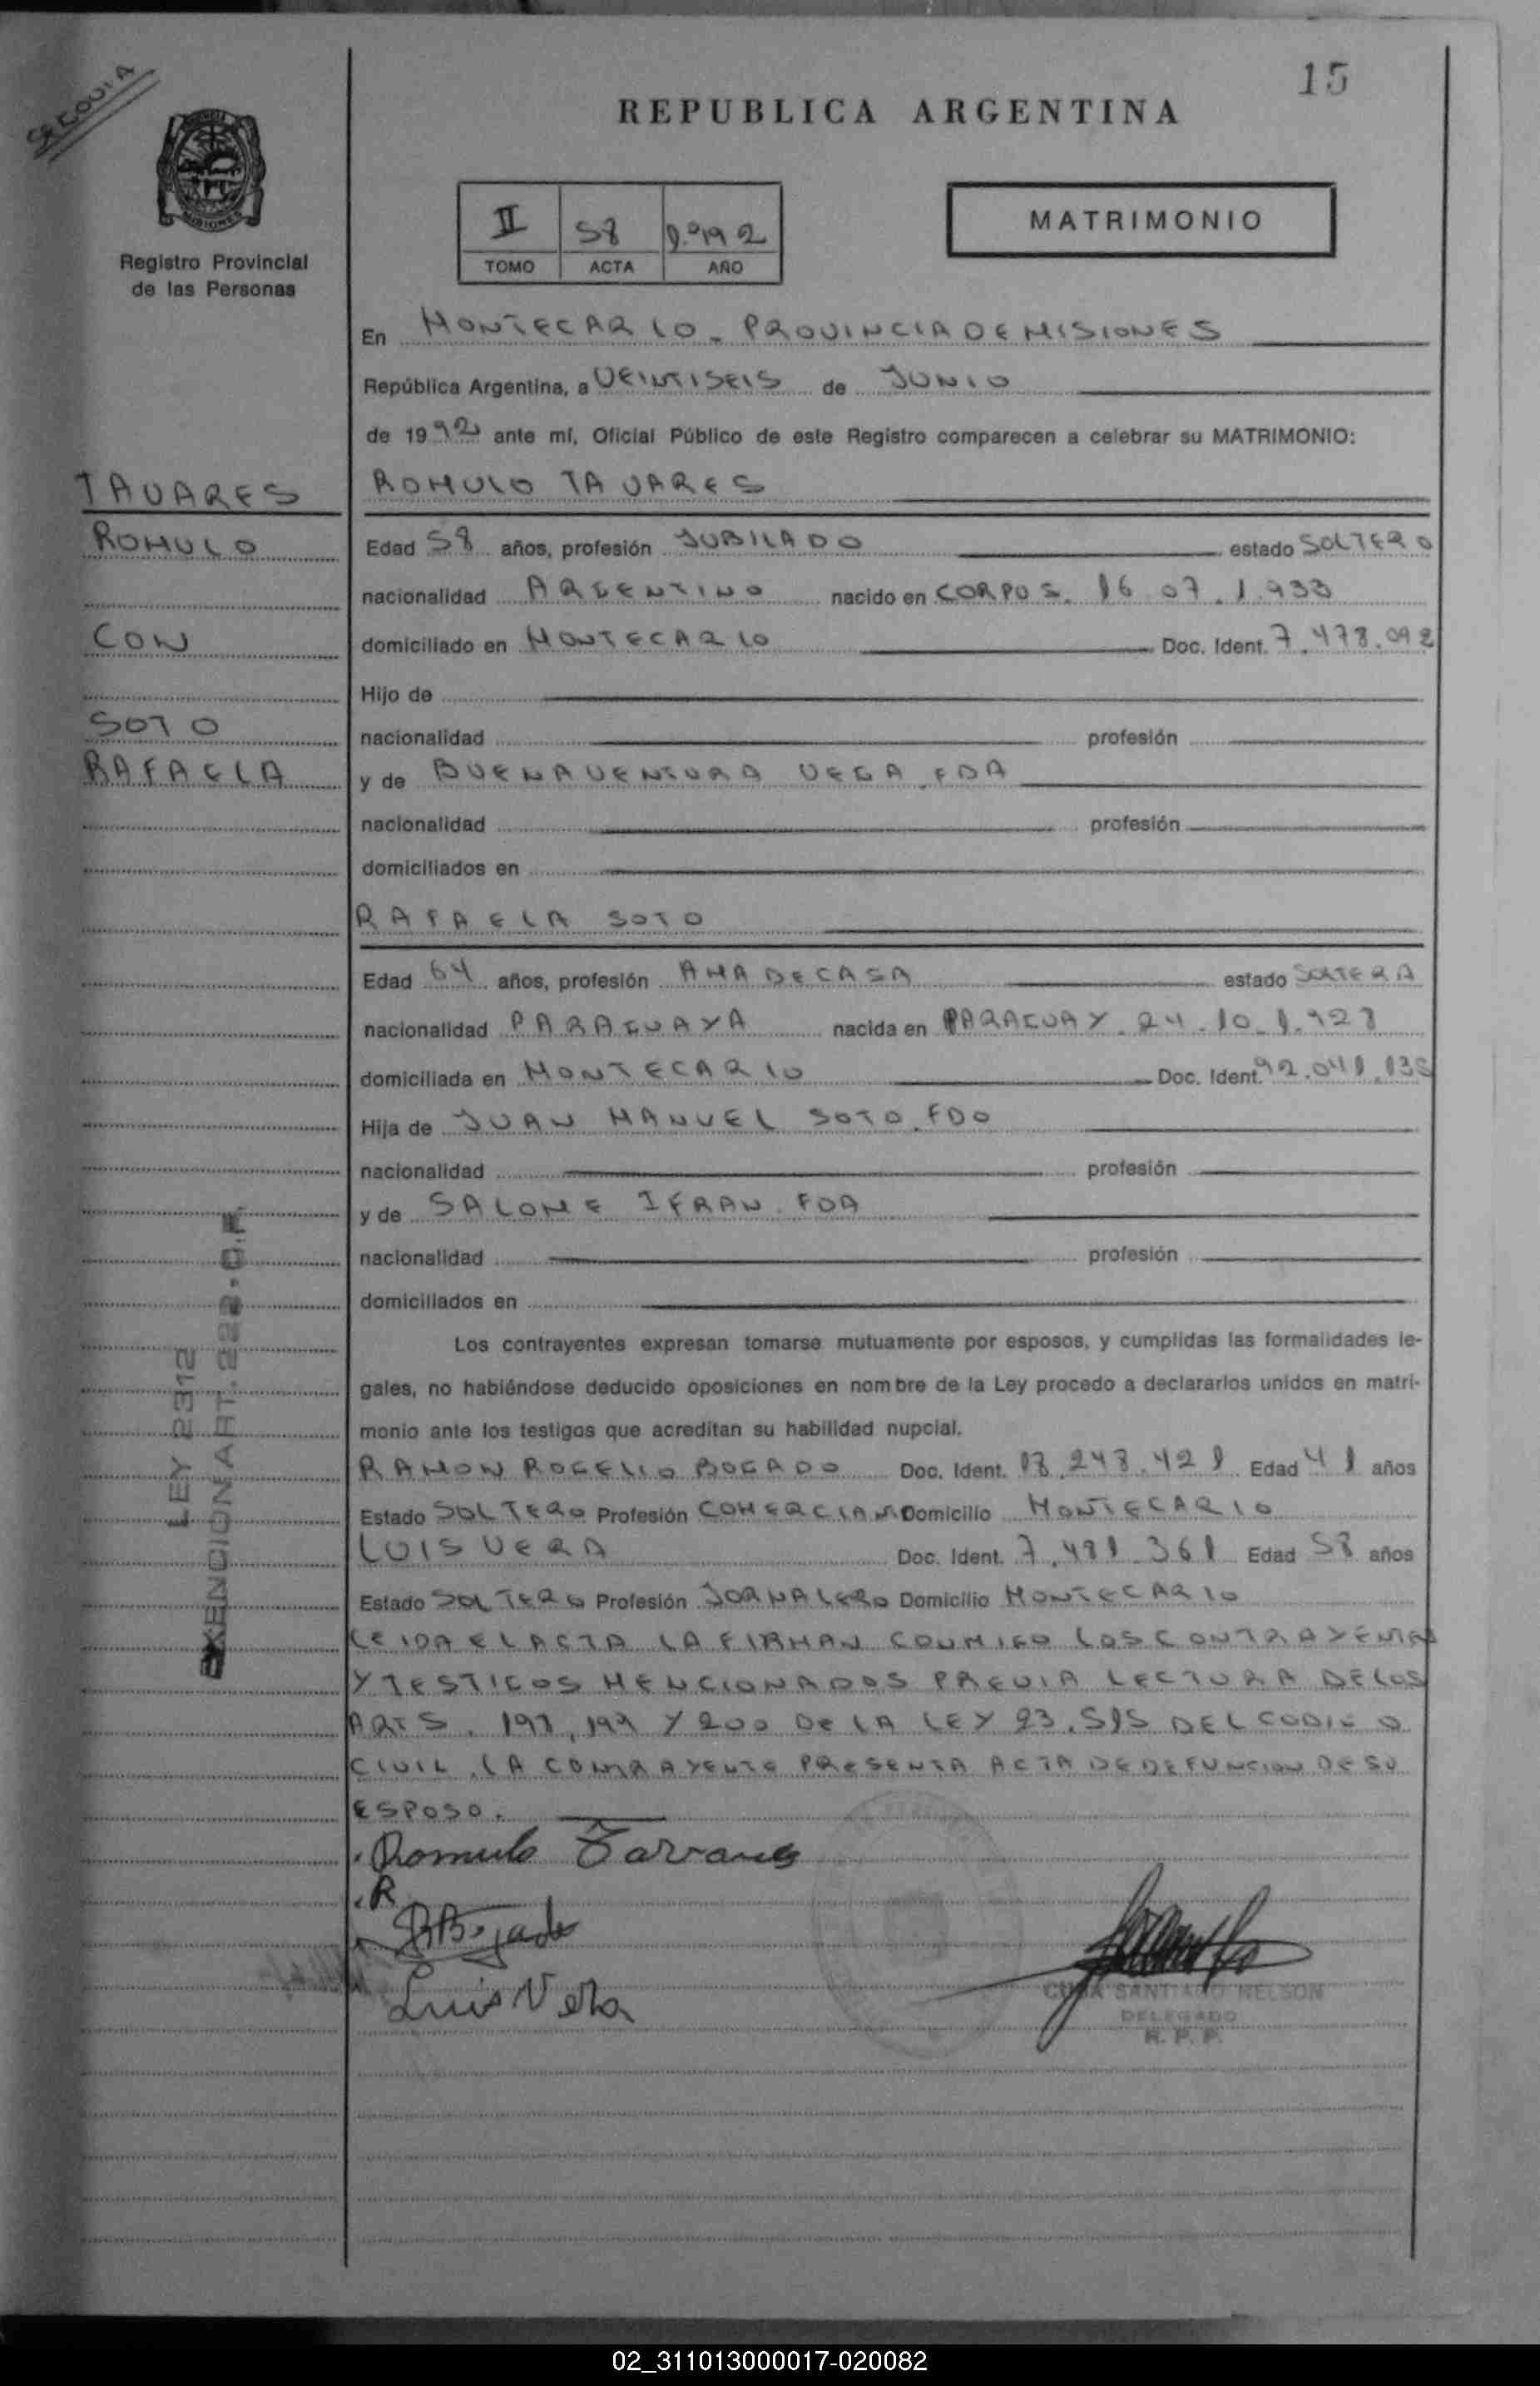 15
SEGOVIA
REPUBLICA ARGENTINA
MISIONES
Registro Provincial
de las Personas
II 58 1.992
TOMO ACTA AÑO
MATRIMONIO
En MONTECARLO - PROVINCIA DE MISIONES
República Argentina, a VEINTISEIS de JUNIO
de 1992 ante mí, Oficial Público de este Registro comparecen a celebrar su MATRIMONIO:
TAVARES
ROMULO
CON
SOTO
RAFAELA
ROMULO TAVARES
Edad 58 años, profesión JUBILADO estado SOLTERO
nacionalidad ARGENTINO nacido en CORPUS. 16.07.1.933
domiciliado en MONTECARLO Doc. Ident. 7.478.092
Hijo de
nacionalidad profesión
y de BUENAVENTURA VEGA, FDA
nacionalidad profesión
domiciliados en
RAFAELA SOTO
Edad 64 años, profesión AMA DE CASA estado SOLTERA
nacionalidad PARAGUAYA nacida en PARAGUAY. 24.10.1.927
domiciliada en MONTECARLO Doc. Ident. 92.041.135
Hija de JUAN MANUEL SOTO. FDO
nacionalidad profesión
y de SALOME IFRAN. FDA
nacionalidad profesión
domiciliados en
Los contrayentes expresan tomarse mutuamente por esposos, y cumplidas las formalidades le-
gales, no habiéndose deducido oposiciones en nombre de la Ley procedo a declararlos unidos en matri-
monio ante los testigos que acreditan su habilidad nupcial.
LEY 2312
EXENCION ART. 222
RAMON ROGELIO BOGADO Doc. Ident. 13.248.421 Edad 41 años
Estado SOLTERO Profesión COMERCIAN Domicilio MONTECARLO
LUIS VERA Doc. Ident. 7.481.361 Edad 58 años
Estado SOLTERO Profesión JORNALERO Domicilio MONTECARLO
LEIDA EL ACTA LA FIRMAN CONMIGO LOS CONTRAYENTES
Y TESTIGOS MENCIONADOS PREVIA LECTURA DE LOS
ARTS. 198, 199 Y 200 DE LA LEY 23.515 DEL CODIGO
CIVIL. LA CONTRAYENTE PRESENTA ACTA DE DEFUNCION DE SU
ESPOSO.
Romulo Tavares
R
RBogado
Luis Vera
CUBA SANTIAGO NELSON
DELEGADO
R. P. P.
02_311013000017-020082